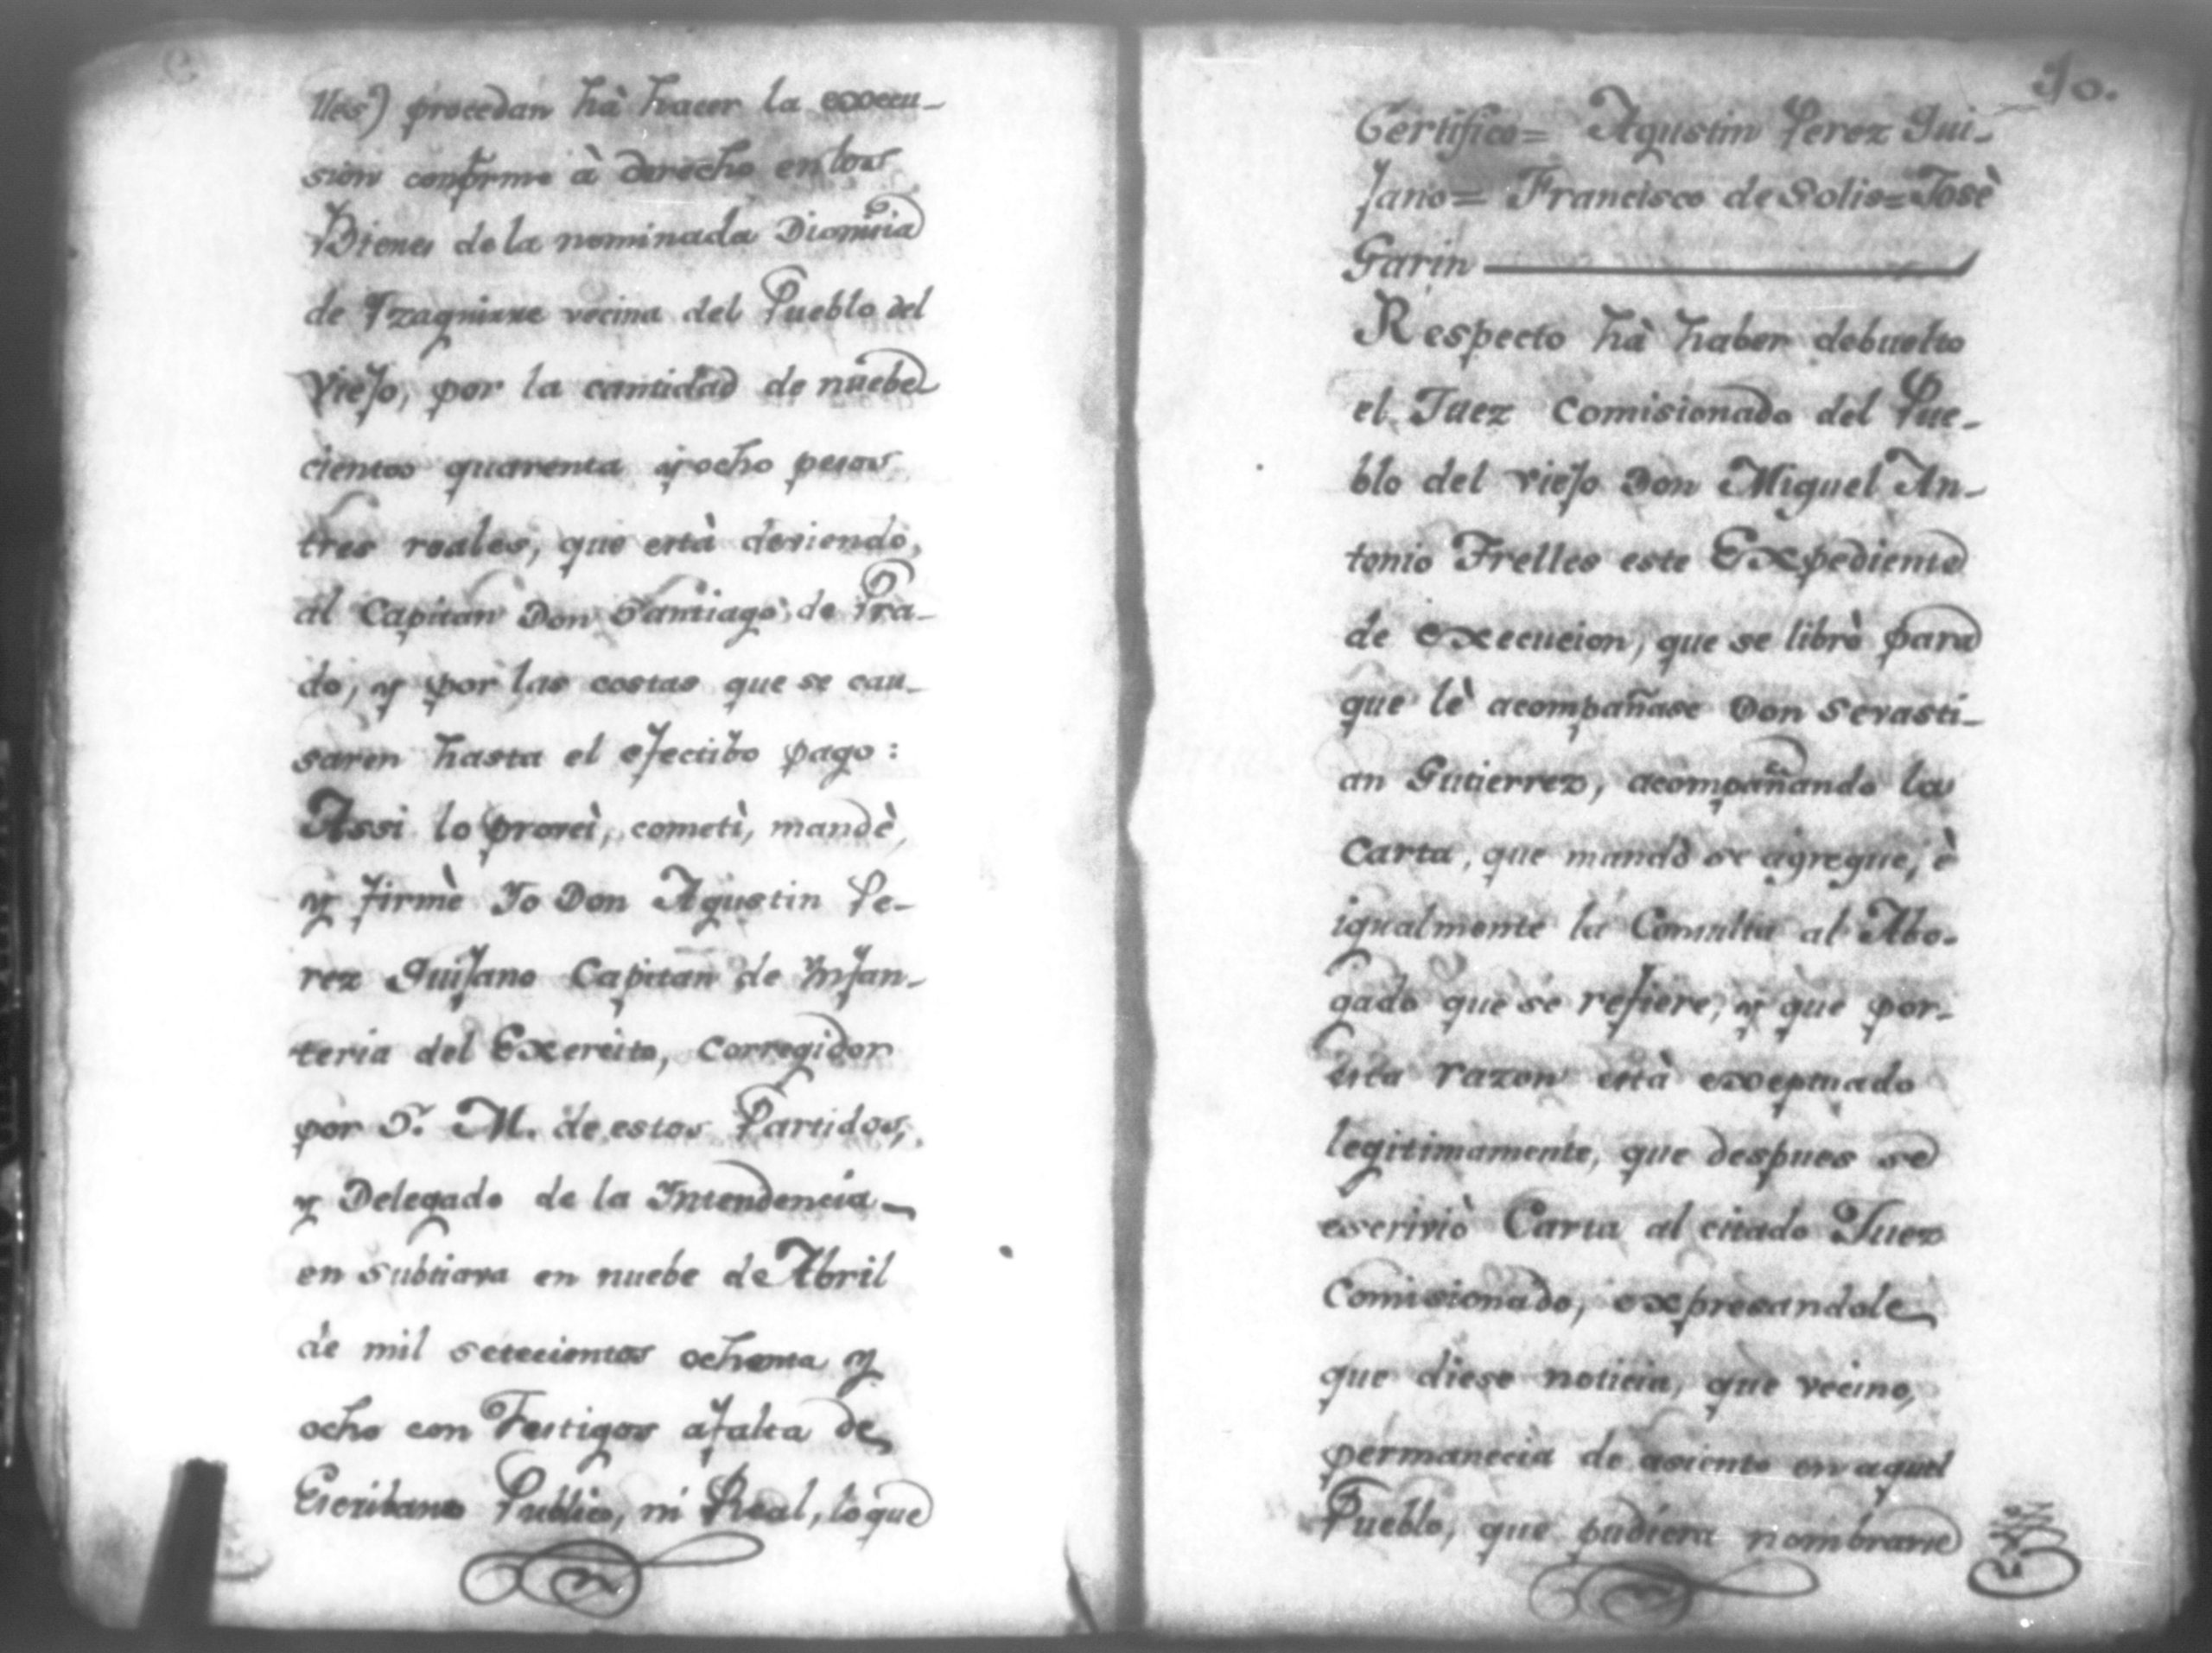 lles) procedan hà hacer la execu-
sion conforme à derecho en los
Bienes de la nominada Dionisia
de Yzaguirre vecina del Pueblo del
Viejo, por la cantidad de nuebe
cientos quarenta y ocho pesos
tres reales, que està deviendo,
al Capitan Don Santiago de Pra-
do, y por las costas que se cau-
saren hasta el efectibo pago:
Assi lo proveì, cometì, mandè,
y firmè Yo Don Agustin Pe-
rez Quijano Capitan de Ynfan-
teria del Exercito, Corregidor
por S. M. de estos Partidos,
y Delegado de la Yntendencia
en Subtiava en nuebe de Abril
de mil setecientos ochenta y
ocho con Testigos afalta de
Escribano Publico, ni Real, lo que
10.
Certifico= Agustin Perez Qui-
jano= Francisco de Solis= Josè
Garin
Respecto hà haber debuelto
el Juez Comisionado del Pue-
blo del viejo Don Miguel An-
tonio Frelles este Expediente
de execucion, que se librò para
que lè acompañase Don Sevasti-
an Gutierrez, acompañando la
Carta, que mando se agregue, è
igualmente la Consulta al Abo-
gado que se refiere, y que por-
esta razon està exceptuado
legitimamente, que despues se
escriviò Carta al citado Juez
Comisionado, expresandole
que diese noticia, que vecino,
permanecia de asiento en aquel
Pueblo, que pudiera nombrarse